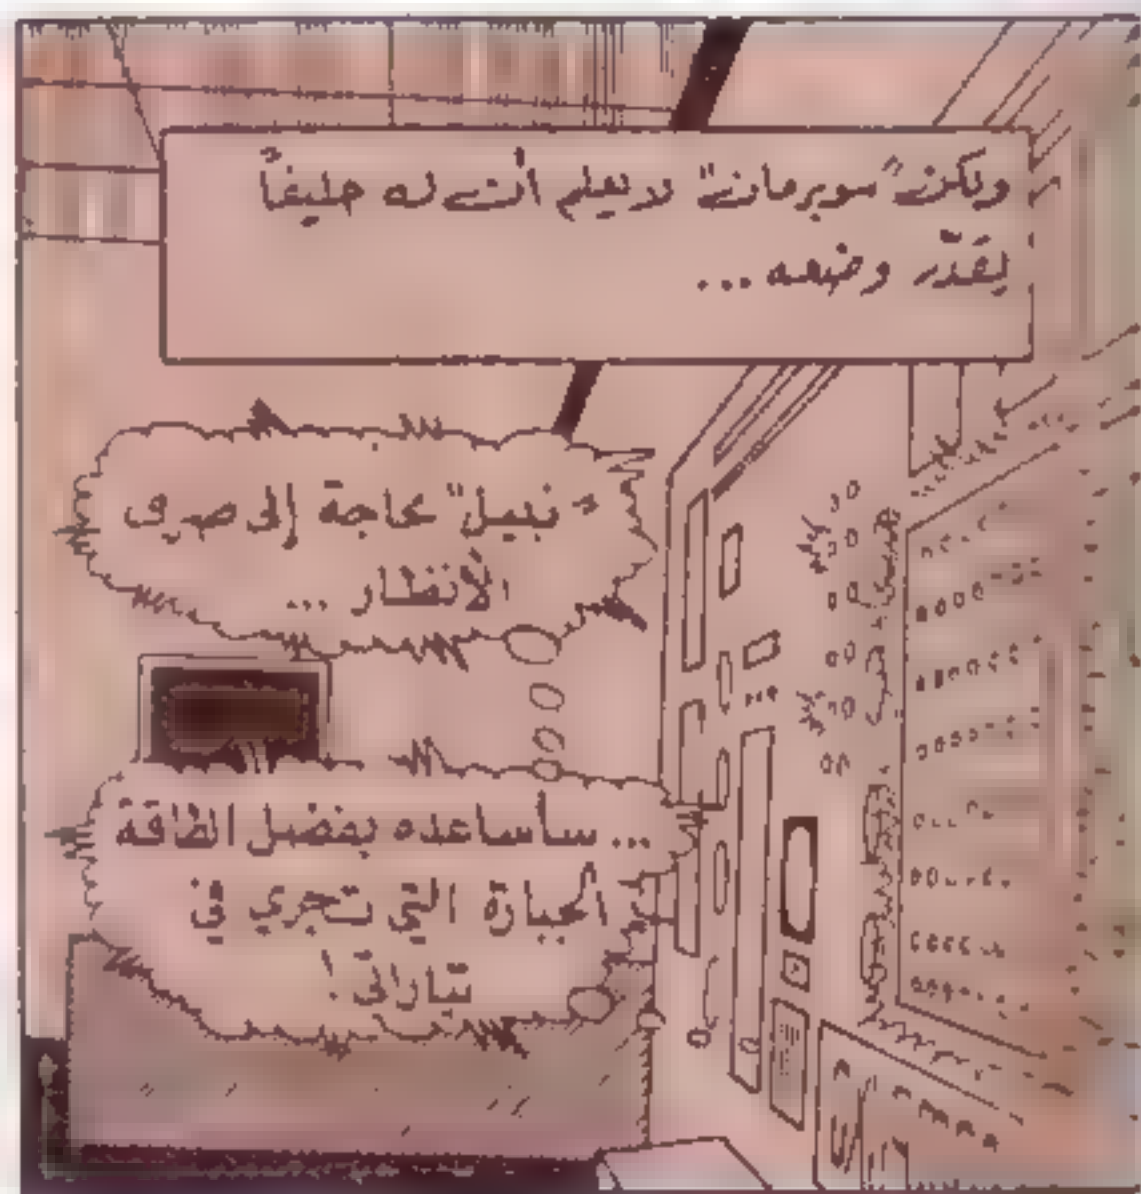 ولكن "سوبرمان" لا يعلم أن له حليفاً
يقدّر وضعه ...
"نبيل" بحاجة إلى صرف
الأنظار ...
... سأساعده بفضل الطاقة
الجبارة التي تجري في
تياراتي !